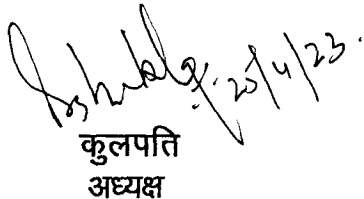 25/4/23.
कुलपति
अध्यक्ष